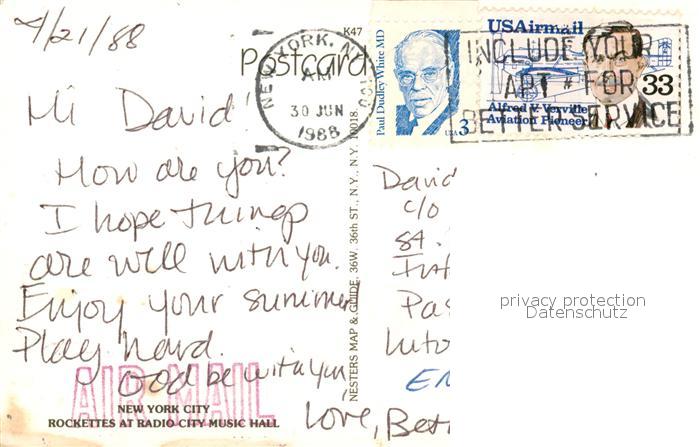 4/21/88
K47
Postcard
NEW YORK, NY
AM
30 JUN
1988
Paul Dudley White MD
USA 3
USAirmail
33
Alfred V. Verville
Aviation Pioneer
INCLUDE YOUR
APT # FOR
BETTER SERVICE
Hi David!
How are you?
I hope things
are well with you.
Enjoy your summer
Play hard.
God be with you
Love, Bett
David
c/o
St.
Pas
EN
NESTERS MAP & GUIDE, 36W. 36th ST., N.Y., N.Y. 10018
privacy protection
Datenschutz
AIR MAIL
NEW YORK CITY
ROCKETTES AT RADIO CITY MUSIC HALL